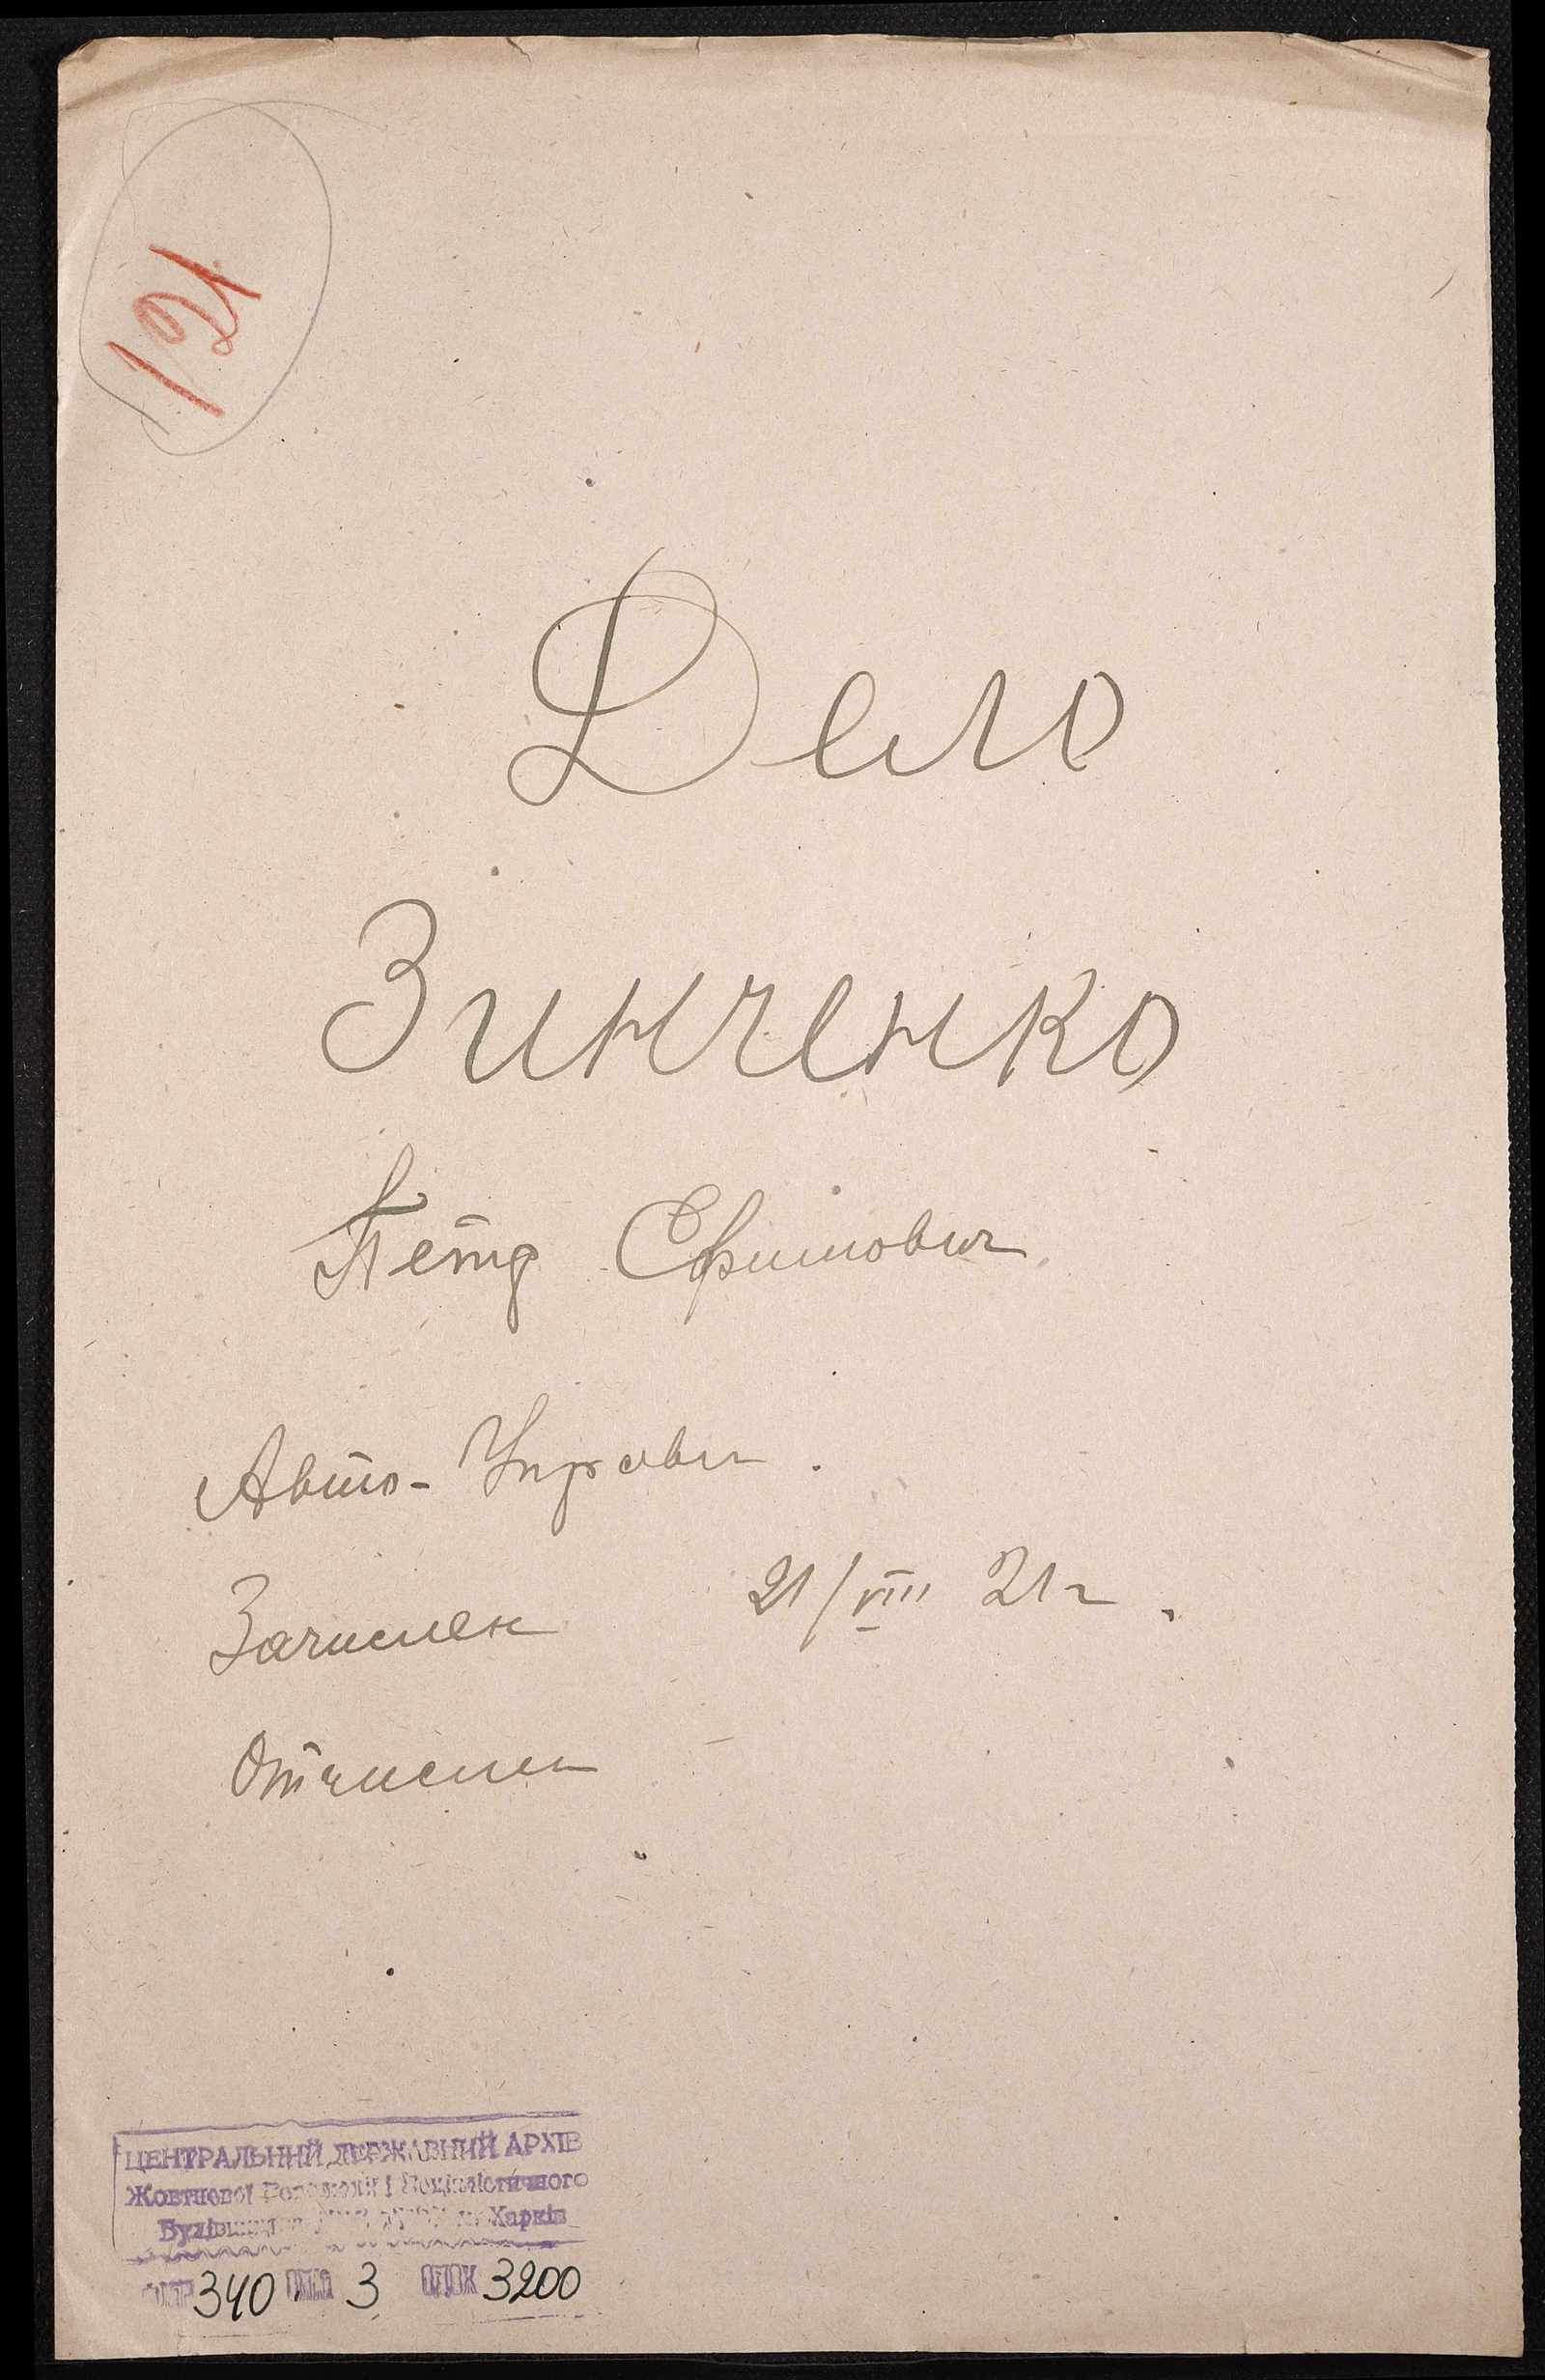 121
Дело
Зинченко
Петр Ефимович
Авто-Управл.
Зачислен 21/VIII 21 г.
Отчислен
ЦЕНТРАЛЬНИЙ ДЕРЖАВНИЙ АРХІВ
Жовтневої Революції і Соціалістичного
Харків
340 3 3200